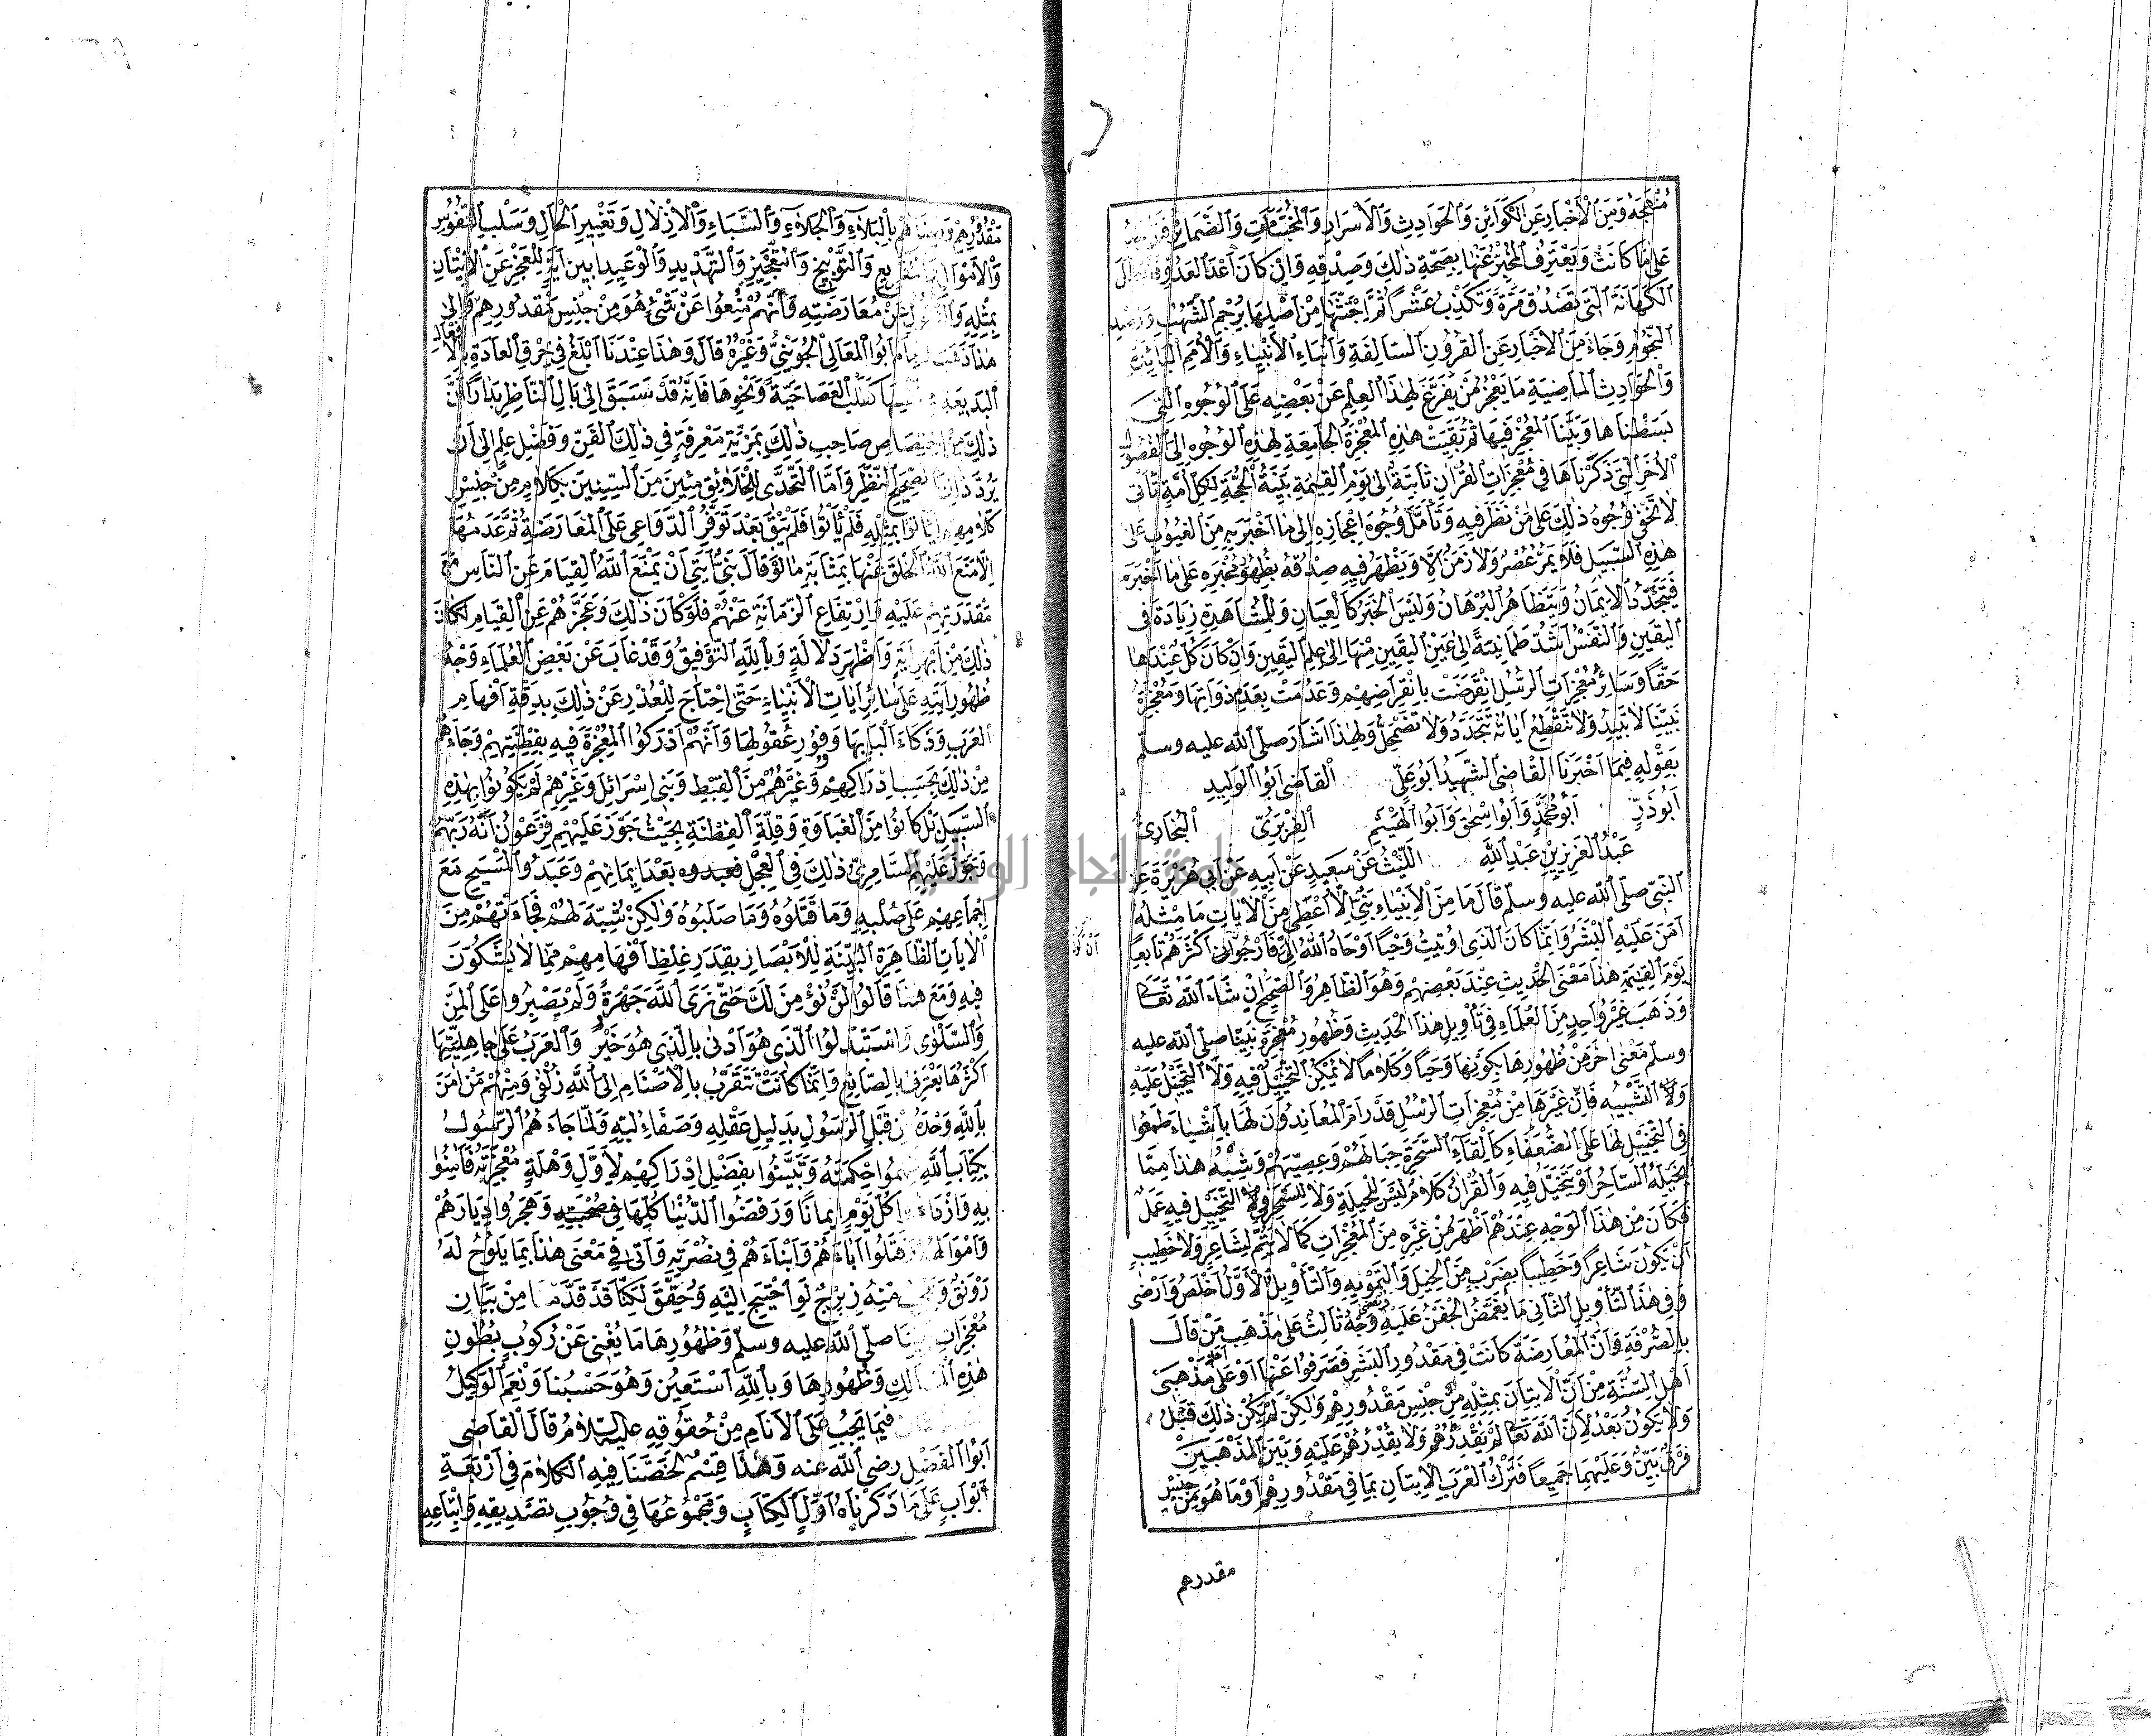 مُهْجَهُ وَبَيَنَ الْأَخْبَارِ عَنِ الْكَوَايِنِ وَالْحَوَادِثِ وَالْأَسْرَارِ وَالْمُخَبَّآتِ وَالضَّمَايِرِ
عَلَى مَا كَانَتْ وَيَعْتَرِفُ الْمُخْبَرُ عَنْهَا بِصِحَّةِ ذَلِكَ وَصِدْقِهِ وَاِنْ كَانَ اَعْدَا الْعَدُوِّ
الْكَهَانَةَ الَّتِي تَصْدُقُ مَرَّةً وَتَكْذِبُ عَشْراً ثُمَّ اجْتَثَّهَا مِنْ اَصْلِهَا بِرَجْمِ الشُّهُبِ وَرَصْدِ
النُّجُومِ وَجَاءَ مِنَ الْأَخْبَارِ عَنِ الْقُرُونِ السَّالِفَةِ وَاَنْبَاءِ الْأَنْبِيَاءِ وَالْأُمَمِ الْبَائِدَةِ
وَالْحَوَادِثِ الْمَاضِيَةِ مَا يَعْجِزُ مَنْ يَفْرَغُ لِهٰذَا الْعِلْمِ عَنْ بَعْضِهِ عَلَى الْوُجُوهِ الَّتِي
بَسَطْنَاهَا وَبَيَّنَّا الْمُعْجِزَ فِيهَا ثُمَّ بَقِيَتْ هٰذِهِ الْمُعْجِزَةُ الْجَامِعَةُ لِهٰذِهِ الْوُجُوهِ اِلَى الْفُصُولِ
الْأُخَرِ الَّتِي ذَكَرْنَاهَا فِي مُعْجِزَاتِ الْقُرْاٰنِ ثَابِتَةً اِلٰى يَوْمِ الْقِيٰمَةِ بَيِّنَةَ الْحُجَّةِ لِكُلِّ اُمَّةٍ تَأْتِي
لَا تَخْفٰى وُجُوهُ ذٰلِكَ عَلٰى مَنْ نَظَرَ فِيهِ وَتَأَمَّلَ وُجُوهَ اِعْجَازِهِ اِلٰى مَا اَخْبَرَ بِهِ مِنَ الْغُيُوبِ عَلٰى
هٰذِهِ السَّبِيلِ فَلَا يَمُرُّ عَصْرٌ وَلَا زَمَنٌ اِلَّا وَيَظْهَرُ فِيهِ صِدْقُهُ بِظُهُورِ مُخْبَرِهِ عَلٰى مَا اَخْبَرَ
فَيَتَجَدَّدُ الْاِيمَانُ وَيَتَظَاهَرُ الْبُرْهَانُ وَلَيْسَ الْخَبَرُ كَالْعِيَانِ وَلِلْمُشَاهَدَةِ زِيَادَةٌ فِي
الْيَقِينِ وَالنَّفْسُ اَشَدُّ طُمَأْنِينَةً اِلٰى عَيْنِ الْيَقِينِ مِنْهَا اِلٰى عِلْمِ الْيَقِينِ وَاِنْ كَانَ كُلٌّ عِنْدَهَا
حَقًّا وَسَائِرُ مُعْجِزَاتِ الرُّسُلِ انْقَرَضَتْ بِانْقِرَاضِهِمْ وَعَدُمَتْ بِعَدَمِ ذَوَاتِهَا وَمُعْجِزَةُ
نَبِيِّنَا لَا تَبِيدُ وَلَا تَنْقَطِعُ اٰيَاتُهُ تَتَجَدَّدُ وَلَا تَضْمَحِلُّ وَلِهٰذَا اَشَارَ صلّى الله عليه وسلم
بِقَوْلِهِ فِيمَا اَخْبَرَنَا الْقَاضِي الشَّهِيدُ اَبُو عَلِيٍّ الْقَاضِي اَبُوا الْوَلِيدِ
اَبُو ذَرٍّ اَبُو مُحَمَّدٍ وَاَبُو اِسْحٰقَ وَاَبُوا الْهَيْثَمِ الْفِرَبْرِيُّ الْبُخَارِيُّ
عَبْدُ الْعَزِيزِ بْنُ عَبْدِ اللّٰهِ اللَّيْثُ عَنْ سَعِيدٍ عَنْ اَبِيهِ عَنْ اَبِي هُرَيْرَةَ عَنِ
النَّبِيِّ صلّى الله عليه وسلم قَالَ مَا مِنَ الْاَنْبِيَاءِ نَبِيٌّ اِلَّا اُعْطِيَ مِنَ الْاٰيَاتِ مَا مِثْلُهُ
اٰمَنَ عَلَيْهِ الْبَشَرُ وَاِنَّمَا كَانَ الَّذِي اُوتِيتُ وَحْيًا اَوْحَاهُ اللّٰهُ اِلَيَّ فَاَرْجُوا اَنِّي اَكْثَرُهُمْ تَابِعاً
يَوْمَ الْقِيٰمَةِ هٰذَا مَعْنَى الْحَدِيثِ عِنْدَ بَعْضِهِمْ وَهُوَ الظَّاهِرُ وَالصَّحِيحُ اِنْ شَاءَ اللّٰهُ تَعَالٰى
وَذَهَبَ غَيْرُ وَاحِدٍ مِنَ الْعُلَمَاءِ فِي تَأْوِيلِ هٰذَا الْحَدِيثِ وَظُهُورِ مُعْجِزَةِ نَبِيِّنَا صلى الله عليه
وسلم مَعْنًى اٰخَرَ مِنْ ظُهُورِهَا بِكَوْنِهَا وَحْيًا وَكَلَامًا لَا يُمْكِنُ التَّخْيِيلُ فِيهِ وَلَا التَّحَيُّلُ عَلَيْهِ
وَلَا التَّشْبِيهُ فَاِنَّ غَيْرَهَا مِنْ مُعْجِزَاتِ الرُّسُلِ قَدْ رَامَ الْمُعَانِدُونَ لَهَا بِاَشْيَاءَ طَمِعُوا
فِي التَّخْيِيلِ بِهَا عَلَى الضُّعَفَاءِ كَاِلْقَاءِ السَّحَرَةِ حِبَالَهُمْ وَعِصِيَّهُمْ وَشِبْهُ هٰذَا مِمَّا
يُخَيِّلُهُ السَّاحِرُ اَوْ يَتَحَيَّلُ فِيهِ وَالْقُرْاٰنُ كَلَامٌ لَيْسَ لِلْحِيلَةِ وَلَا لِلسِّحْرِ فِي التَّخْيِيلِ فِيهِ عَمَلٌ
فَكَانَ مِنْ هٰذَا الْوَجْهِ عِنْدَهُمْ اَظْهَرَ مِنْ غَيْرِهِ مِنَ الْمُعْجِزَاتِ كَمَا لَا يَتِمُّ لِشَاعِرٍ وَلَا خَطِيبٍ
اَنْ يَكُونَ شَاعِرًا وَخَطِيبًا بِضَرْبٍ مِنَ الْحِيَلِ وَالتَّمْوِيهِ وَالتَّأْوِيلُ الْاَوَّلُ اَخْلَصُ وَاَرْضٰى
وَفِي هٰذَا التَّأْوِيلِ الثَّانِي مَا يُغَمَّضُ الْجَفْنُ عَلَيْهِ وَيُغْضٰى وَجْهٌ ثَالِثٌ عَلٰى مَذْهَبِ مَنْ قَالَ
بِالصَّرْفَةِ وَاَنَّ الْمُعَارَضَةَ كَانَتْ فِي مَقْدُورِ الْبَشَرِ فَصُرِفُوا عَنْهَا اَوْ عَلٰى اَحَدِ مَذْهَبَيْ
اَهْلِ السُّنَّةِ مِنْ اَنَّ الْاِتْيَانَ بِمِثْلِهِ مِنْ جِنْسِ مَقْدُورِهِمْ وَلٰكِنْ لَمْ يَكُنْ ذٰلِكَ قَبْلُ
وَلَا يَكُونُ بَعْدُ لِاَنَّ اللّٰهَ تَعَالٰى لَمْ يُقْدِرْهُمْ وَلَا يُقْدِرُهُمْ عَلَيْهِ وَبَيْنَ الْمَذْهَبَيْنِ
فَرْقٌ بَيِّنٌ وَعَلَيْهِمَا جَمِيعًا فَتَرْكُ الْعَرَبِ الْاِتْيَانَ بِمَا فِي مَقْدُورِهِمْ اَوْ مَا هُوَ مِنْ جِنْسِ
مقدرهم
مَقْدُورِهِمْ بِالْبَلَاءِ وَالْجَلَاءِ وَالسِّبَاءِ وَالْاِذْلَالِ وَتَغْيِيرِ الْحَالِ وَسَلْبِ النُّفُوسِ
وَالْاَمْوَالِ وَالتَّوْبِيخِ وَالتَّعْجِيزِ وَالتَّهْدِيدِ وَالْوَعِيدِ اَبْيَنُ اٰيَةٍ لِلْعَجْزِ عَنِ الْاِتْيَانِ
بِمِثْلِهِ عَنْ مُعَارَضَتِهِ وَاَنَّهُمْ مُنِعُوا عَنْ شَيْءٍ هُوَ مِنْ جِنْسِ مَقْدُورِهِمْ وَاِلٰى
هٰذَا ذَهَبَ اَبُوا الْمَعَالِي الْجُوَيْنِيُّ وَغَيْرُهُ قَالَ وَهٰذَا عِنْدَنَا اَبْلَغُ فِي خَرْقِ الْعَادَةِ بِالْاَفْعَالِ
الْبَدِيعَةِ كَقَلْبِ الْعَصَا حَيَّةً وَنَحْوِهَا فَاِنَّهُ قَدْ يَسْبِقُ اِلٰى بَالِ النَّاظِرِ بِدَارًا اَنَّ
ذٰلِكَ مِنِ اخْتِصَاصِ صَاحِبِ ذٰلِكَ بِمَزِيَّةِ مَعْرِفَةٍ فِي ذٰلِكَ الْفَنِّ وَفَضْلِ عِلْمٍ اِلٰى اَنْ
يَرُدَّ ذٰلِكَ صَحِيحُ النَّظَرِ وَاَمَّا التَّحَدِّي لِلْخَلَائِقِ مِئِينَ مِنَ السِّنِينَ بِكَلَامٍ مِنْ جِنْسِ
كَلَامِهِمْ لِيَأْتُوا بِمِثْلِهِ فَلَمْ يَأْتُوا فَلَمْ يَبْقَ بَعْدَ تَوَفُّرِ الدَّوَاعِي عَلَى الْمُعَارَضَةِ ثُمَّ عَدَمِهَا
اِلَّا مَنْعُ اللّٰهِ الْخَلْقَ عَنْهَا بِمَثَابَةِ مَا لَوْ قَالَ نَبِيٌّ اٰيَتِي اَنْ يَمْنَعَ اللّٰهُ الْقِيَامَ عَنِ النَّاسِ مَعَ
مَقْدَرَتِهِمْ عَلَيْهِ وَارْتِفَاعِ الزَّمَانَةِ عَنْهُمْ فَلَوْ كَانَ ذٰلِكَ وَعَجَّزَهُمْ عَنِ الْقِيَامِ لَكَانَ
ذٰلِكَ مِنْ اَبْهَرِ اٰيَةٍ وَاَظْهَرِ دَلَالَةٍ وَبِاللّٰهِ التَّوْفِيقُ وَقَدْ غَابَ عَنْ بَعْضِ الْعُلَمَاءِ وَجْهُ
ظُهُورِ اٰيَتِهِ عَلٰى سَائِرِ اٰيَاتِ الْاَنْبِيَاءِ حَتَّى احْتَاجَ لِلْعُذْرِ عَنْ ذٰلِكَ بِدِقَّةِ اَفْهَامِ
الْعَرَبِ وَذَكَاءِ اَلْبَابِهَا وَوُفُورِ عُقُولِهَا وَاَنَّهُمْ اَدْرَكُوا الْمُعْجِزَةَ فِيهِ بِفِطْنَتِهِمْ وَجَاءَهُمْ
مِنْ ذٰلِكَ بِحَسَبِ اِدْرَاكِهِمْ وَغَيْرُهُمْ مِنَ الْقِبْطِ وَبَنِي اِسْرَائِلَ وَغَيْرِهِمْ لَمْ يَكُونُوا بِهٰذِهِ
السَّبِيلِ بَلْ كَانُوا مِنَ الْغَبَاوَةِ وَقِلَّةِ الْفِطْنَةِ بِحَيْثُ جَوَّزَ عَلَيْهِمْ فِرْعَوْنُ اَنَّهُ رَبُّهُمْ
وَجَوَّزَ عَلَيْهِمُ السَّامِرِيُّ ذٰلِكَ فِي الْعِجْلِ فعبدوه بَعْدَ اِيمَانِهِمْ وَعَبَدُوا الْمَسِيحَ مَعَ
اِجْمَاعِهِمْ عَلٰى صَلْبِهِ وَمَا قَتَلُوهُ وَمَا صَلَبُوهُ وَلٰكِنْ شُبِّهَ لَهُمْ فَجَاءَتْهُمْ مِنَ
الْاٰيَاتِ الظَّاهِرَةِ الْبَيِّنَةِ لِلْاَبْصَارِ بِقَدَرِ غِلَظِ اَفْهَامِهِمْ مِمَّا لَا يَشُكُّونَ
فِيهِ وَمَعَ هٰذَا قَالُوا لَنْ نُؤْمِنَ لَكَ حَتّٰى نَرَى اللّٰهَ جَهْرَةً وَلَمْ يَصْبِرُوا عَلَى الْمَنِّ
وَالسَّلْوٰى وَاسْتَبْدَلُوا الَّذِي هُوَ اَدْنٰى بِالَّذِي هُوَ خَيْرٌ وَالْعَرَبُ عَلٰى جَاهِلِيَّتِهَا
اَكْثَرُهَا يَعْتَرِفُ بِالصَّانِعِ وَاِنَّمَا كَانَتْ تَتَقَرَّبُ بِالْاَصْنَامِ اِلَى اللّٰهِ زُلْفٰى وَمِنْهُمْ مَنْ اٰمَنَ
بِاللّٰهِ وَحْدَهُ مِنْ قَبْلِ الرَّسُولِ بِدَلِيلِ عَقْلِهِ وَصَفَاءِ لُبِّهِ وَلَمَّا جَاءَهُمُ الرَّسُولُ
بِكِتَابِ اللّٰهِ فَهِمُوا حِكْمَتَهُ وَتَبَيَّنُوا بِفَضْلِ اِدْرَاكِهِمْ لِاَوَّلِ وَهْلَةٍ مُعْجِزَتَهُ فَاٰمَنُوا
بِهِ وَازْدَادُوا كُلَّ يَوْمٍ اِيمَانًا وَرَفَضُوا الدُّنْيَا كُلَّهَا فِي صُحْبَتِهِ وَهَجَرُوا دِيَارَهُمْ
وَاَمْوَالَهُمْ وَقَتَلُوا اٰبَاءَهُمْ وَاَبْنَاءَهُمْ فِي نُصْرَتِهِ وَاَتٰى فِي مَعْنٰى هٰذَا بِمَا يَلُوحُ لَهُ
رَوْنَقٌ مِنْهُ زِبْرِجٌ لَوِ احْتِيجَ اِلَيْهِ وَحُقِّقَ لٰكِنَّا قَدْ قَدَّمْنَا مِنْ بَيَانِ
مُعْجِزَاتِ نَبِيِّنَا صلّى الله عليه وسلم وَظُهُورِهَا مَا يُغْنِي عَنْ رُكُوبِ بُطُونِ
هٰذِهِ الْمَسَالِكِ وَظُهُورِهَا وَبِاللّٰهِ اَسْتَعِينُ وَهُوَ حَسْبُنَا وَنِعْمَ الْوَكِيلُ
فِيمَا يَجِبُ عَلَى الْاَنَامِ مِنْ حُقُوقِهِ عليه السلامُ قَالَ الْقَاضِي
اَبُوا الْفَضْلِ رضي الله عنه وَهٰذَا قِسْمٌ لَخَّصْنَا فِيهِ الْكَلَامَ فِي اَرْبَعَةِ
اَبْوَابٍ عَلٰى مَا ذَكَرْنَاهُ اَوَّلَ الْكِتَابِ وَمَجْمُوعُهَا فِي وُجُوبِ تَصْدِيقِهِ وَاتِّبَاعِهِ
جامعة النجاح الوطنية